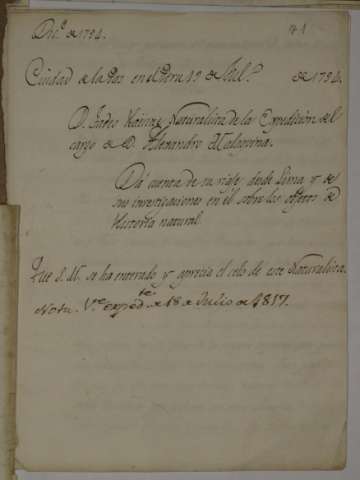 Dic.e de 1794.
Ciudad de la Paz en el Peru 19 de Jul.o de 1794.
D. Tadeo Naturalista de la Expedicion del
cargo de D. Alexandro Malaspina.
Dá cuenta de su viaje desde Lima y de
sus investigaciones en él sobre los objetos de
Historia natural.
Que S. M. se ha enterado y aprecia el celo de este Naturalista.
Nota. V.e exped.te de 18 de Julio de 1817.